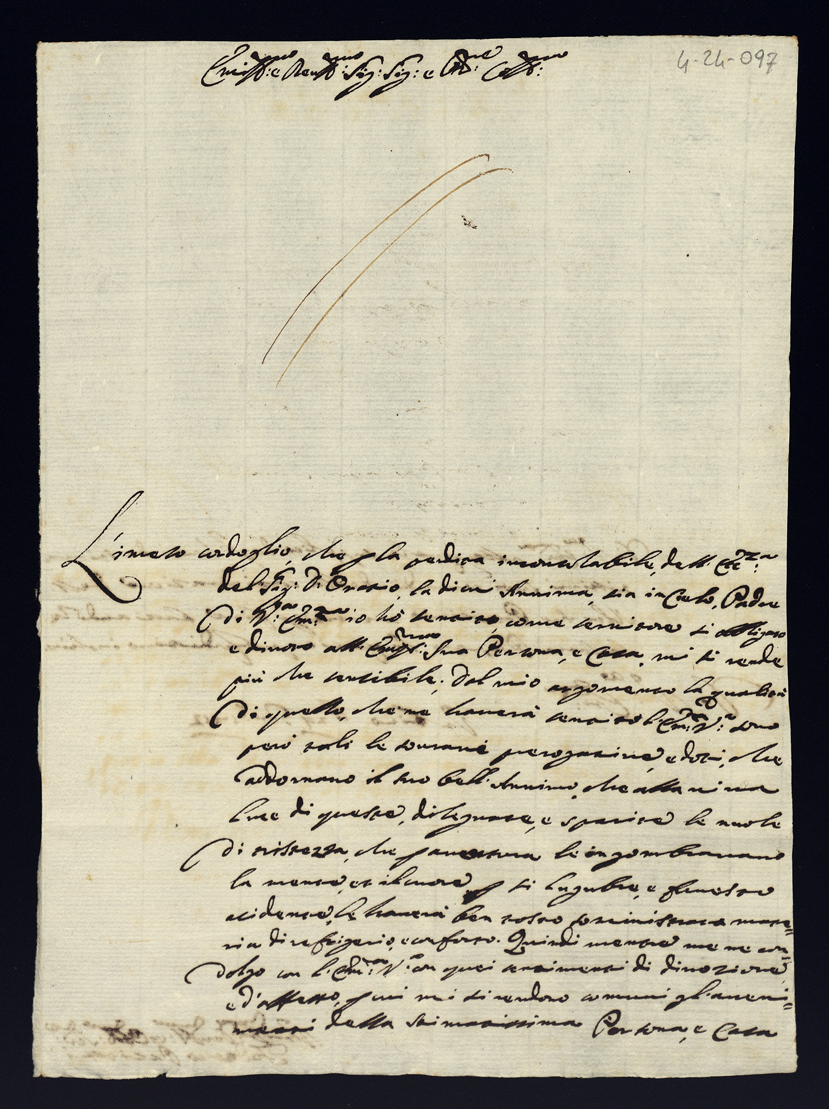 4-24-097
Em:mo e Rev:mo Sig: Sig: e P.ron Coll:mo
L'imenso cordoglio, che p la perdita inconsolabile, dell'Ecc:za
del Sig: D: Orazio, la di cui Annima, sia in Cielo, Padre
di V:ra Em:za io hò sentito come servitore sì obligato
e divoto all' Sua Persona, e Casa, mi si rende
più che sensibile. Dal mio argomento la qualità
di quello, che ne haverà sentito l'Em:za V:ra sono
però tali le sourane prerogative, e doti, che
addornano il suo bell'Annimo, che alla viva
luce di queste, dileguate, e sparite le nuole
di tristezza, che p aventura le ingombravano
la mente, et il cuore p sì lugubre, e funesto
acidente, le haverà ben tosto somministrata mate=
ria di refrigerio, e conforto. Quindi mentre me ne con=
dolgo con l'Em:za V:ra con quei sentimenti di divozione,
e d'affetto, p cui mi si rendono comuni gl'aveni=
menti della stimatissima Persona, e Casa